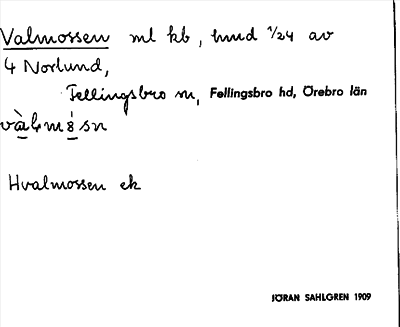 Valmossen ml kb, hmd 1/24 av
4 Norlund,
Fellingsbro sn, Fellingsbro hd, Örebro län
Hvalmossen ek
JÖRAN SAHLGREN 1909